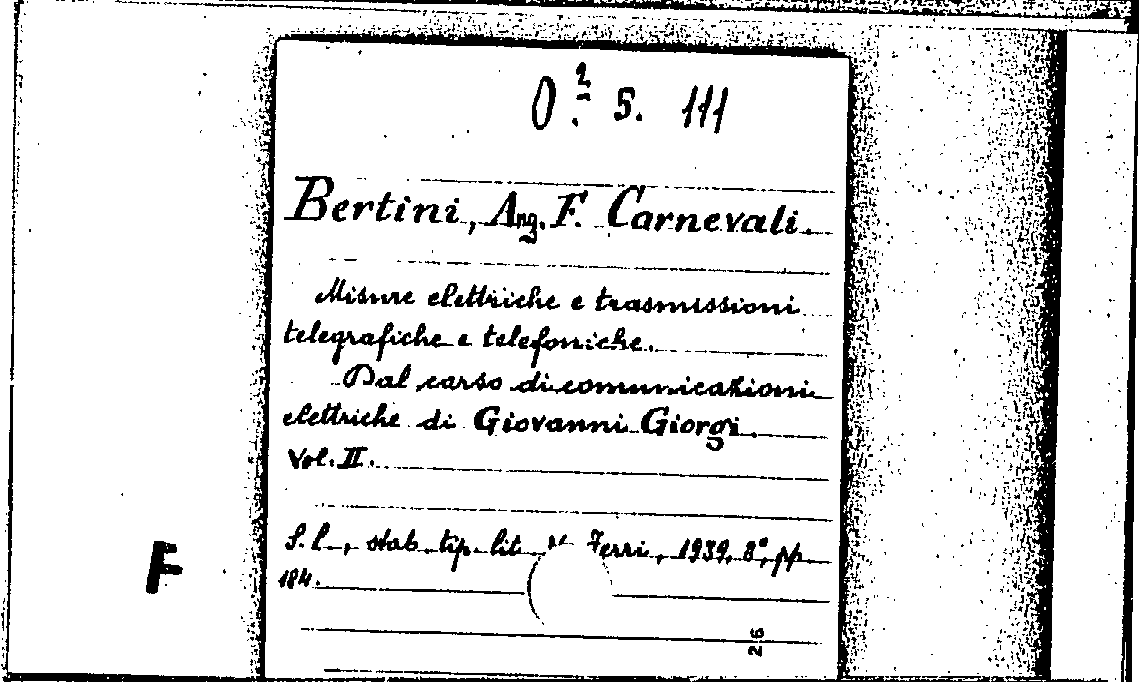 O.2 5. 111
Bertini, Ang. F. Carnevali.
Misure elettriche e trasmissioni
telegrafiche e telefoniche.
Dal corso di comunicazioni
elettriche di Giovanni Giorgi.
Vol. II.
S. l., stab. tip. lit. V. Ferri, 1939, 8°, pp.
184.
F
26